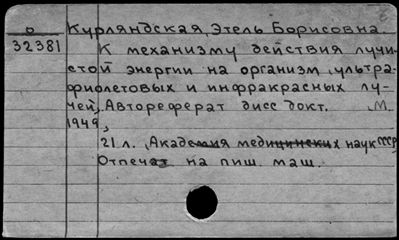 О
32381
Курляндская, Этель Борисовна.
К механизму действия лучи-
стой энергии на организм ультра-
фиолетовых и инфракрасных лу-
чей, Автореферат дисс докт. М.
1949,
21 л. Академия медицинских наук СССР,
Отпечат на пиш. маш.